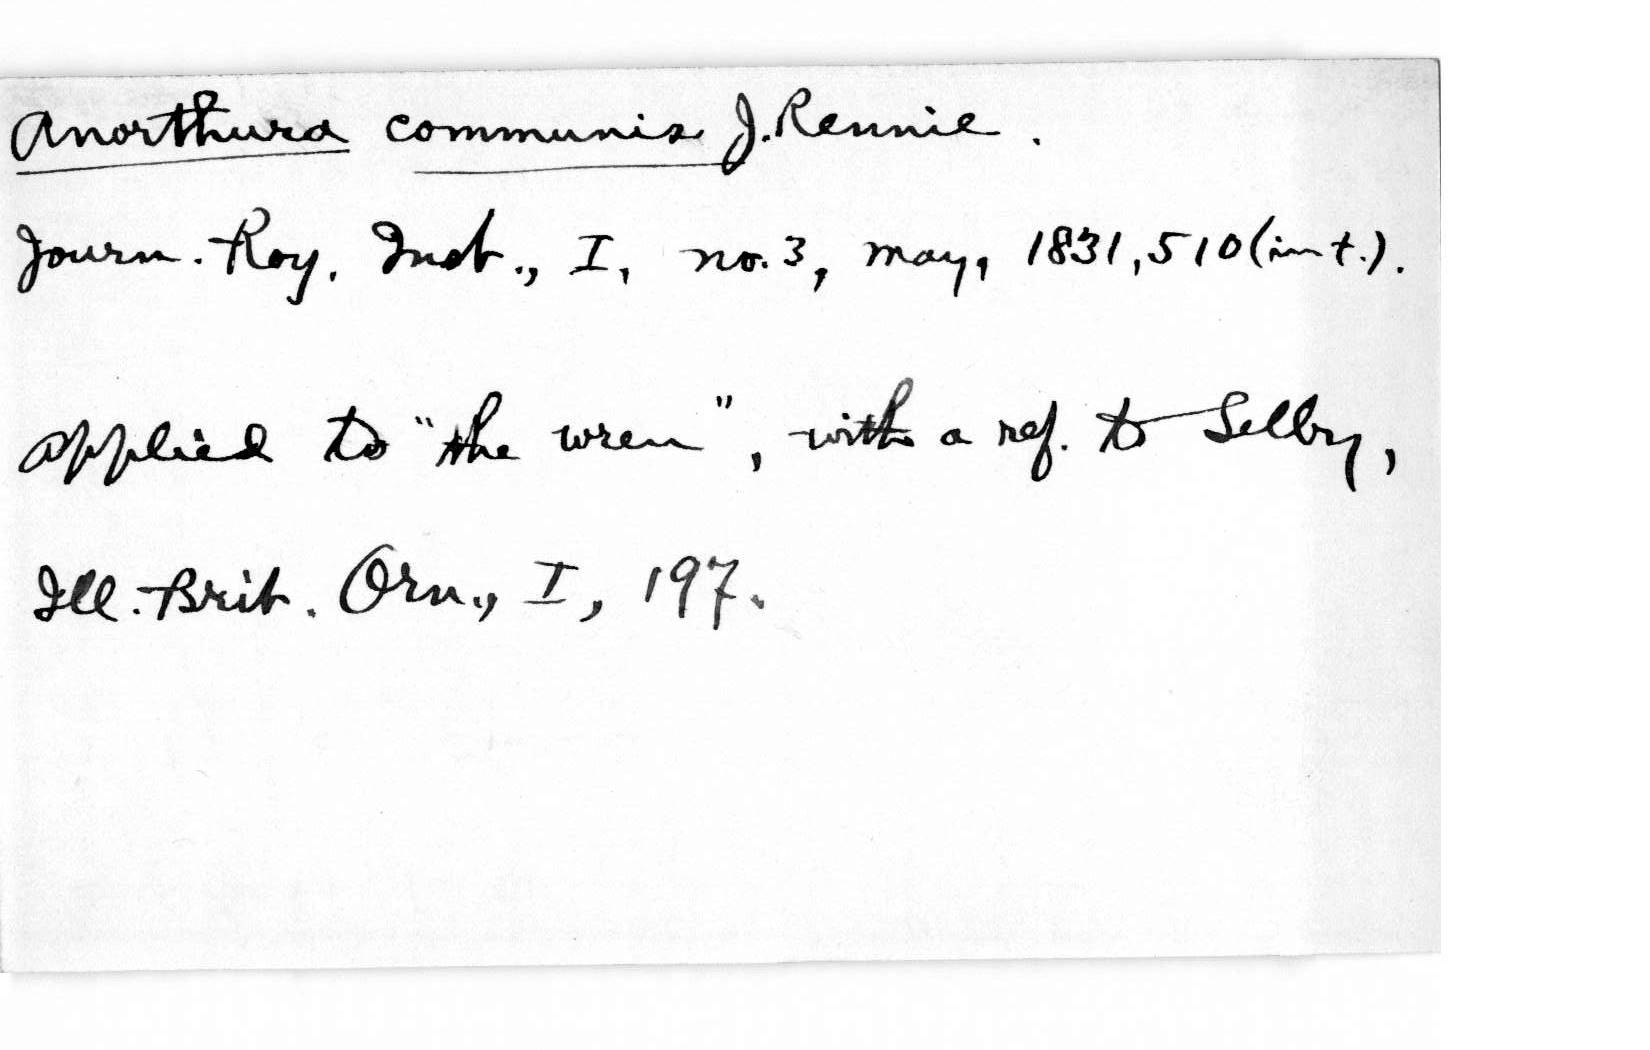 Anorthura communis J. Rennie.
Journ. Roy. Inst., I, no. 3, May, 1831, 510 (in t.).
Applied to "the wren", with a ref. to Selby,
Ill. Brit. Orn., I, 197.